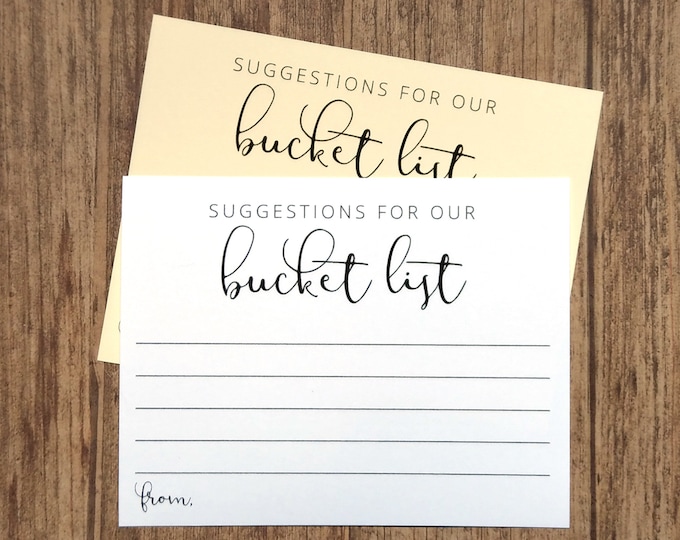 SUGGESTIONS FOR OUR
bucket list
SUGGESTIONS FOR OUR
bucket list
from,